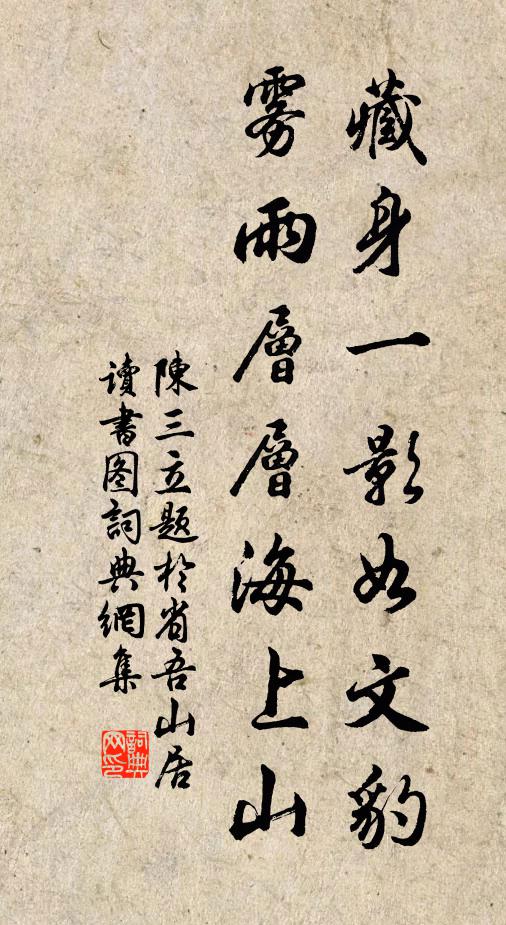 藏身一影如文豹
雾雨層層海上山
陳三立题於省吾山居
读書图詞典網集
詞典網印